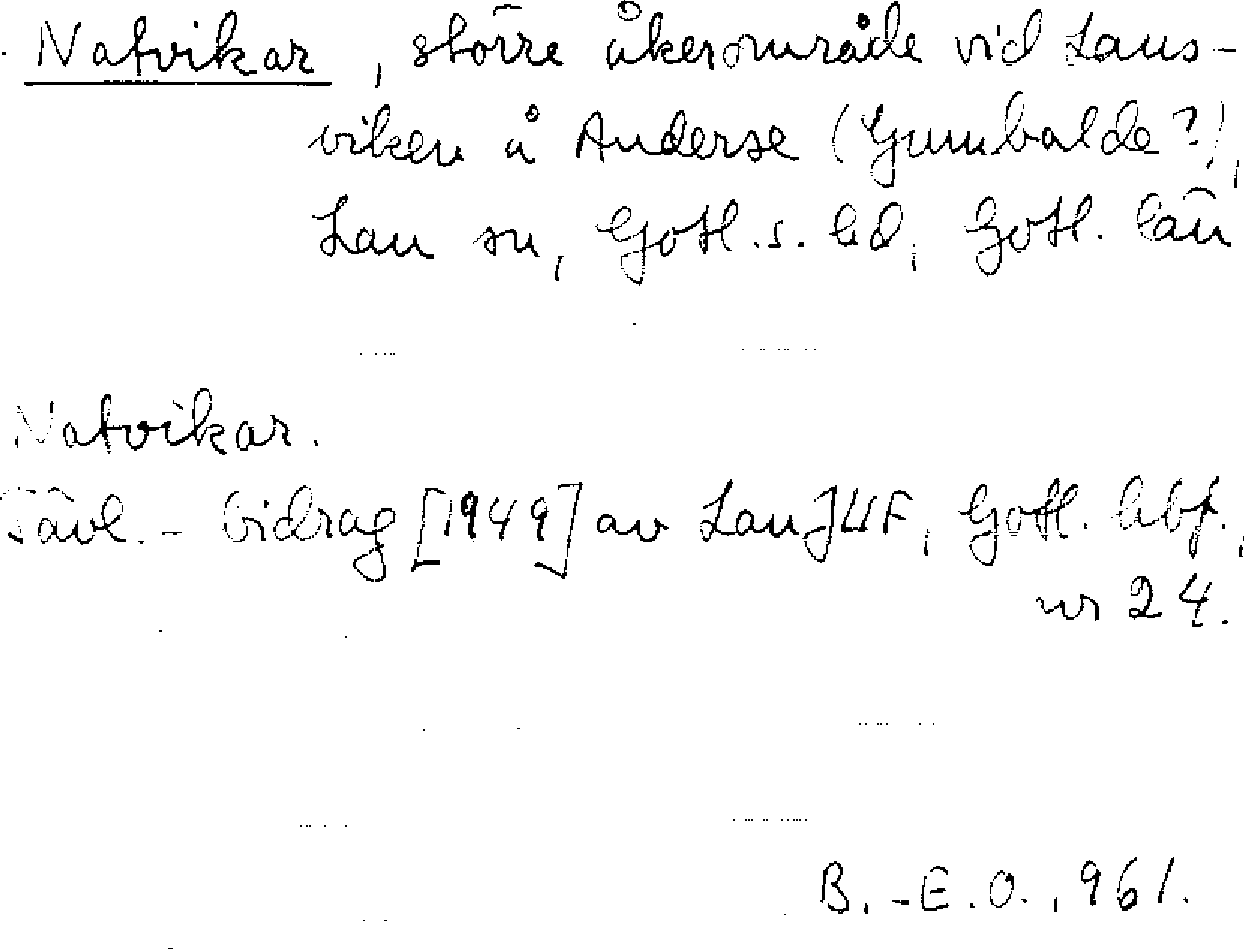 Natvikar, större åkerområde vid Laus-
viken å Anderse (Gumbalde?),
Lau sn, Gotl. s. hd, Gotl. län
Natvikar.
Tävl.-bidrag [1949] av Lau JUF, Gotl. hbf.,
nr 24.
B.-E.O., 961.